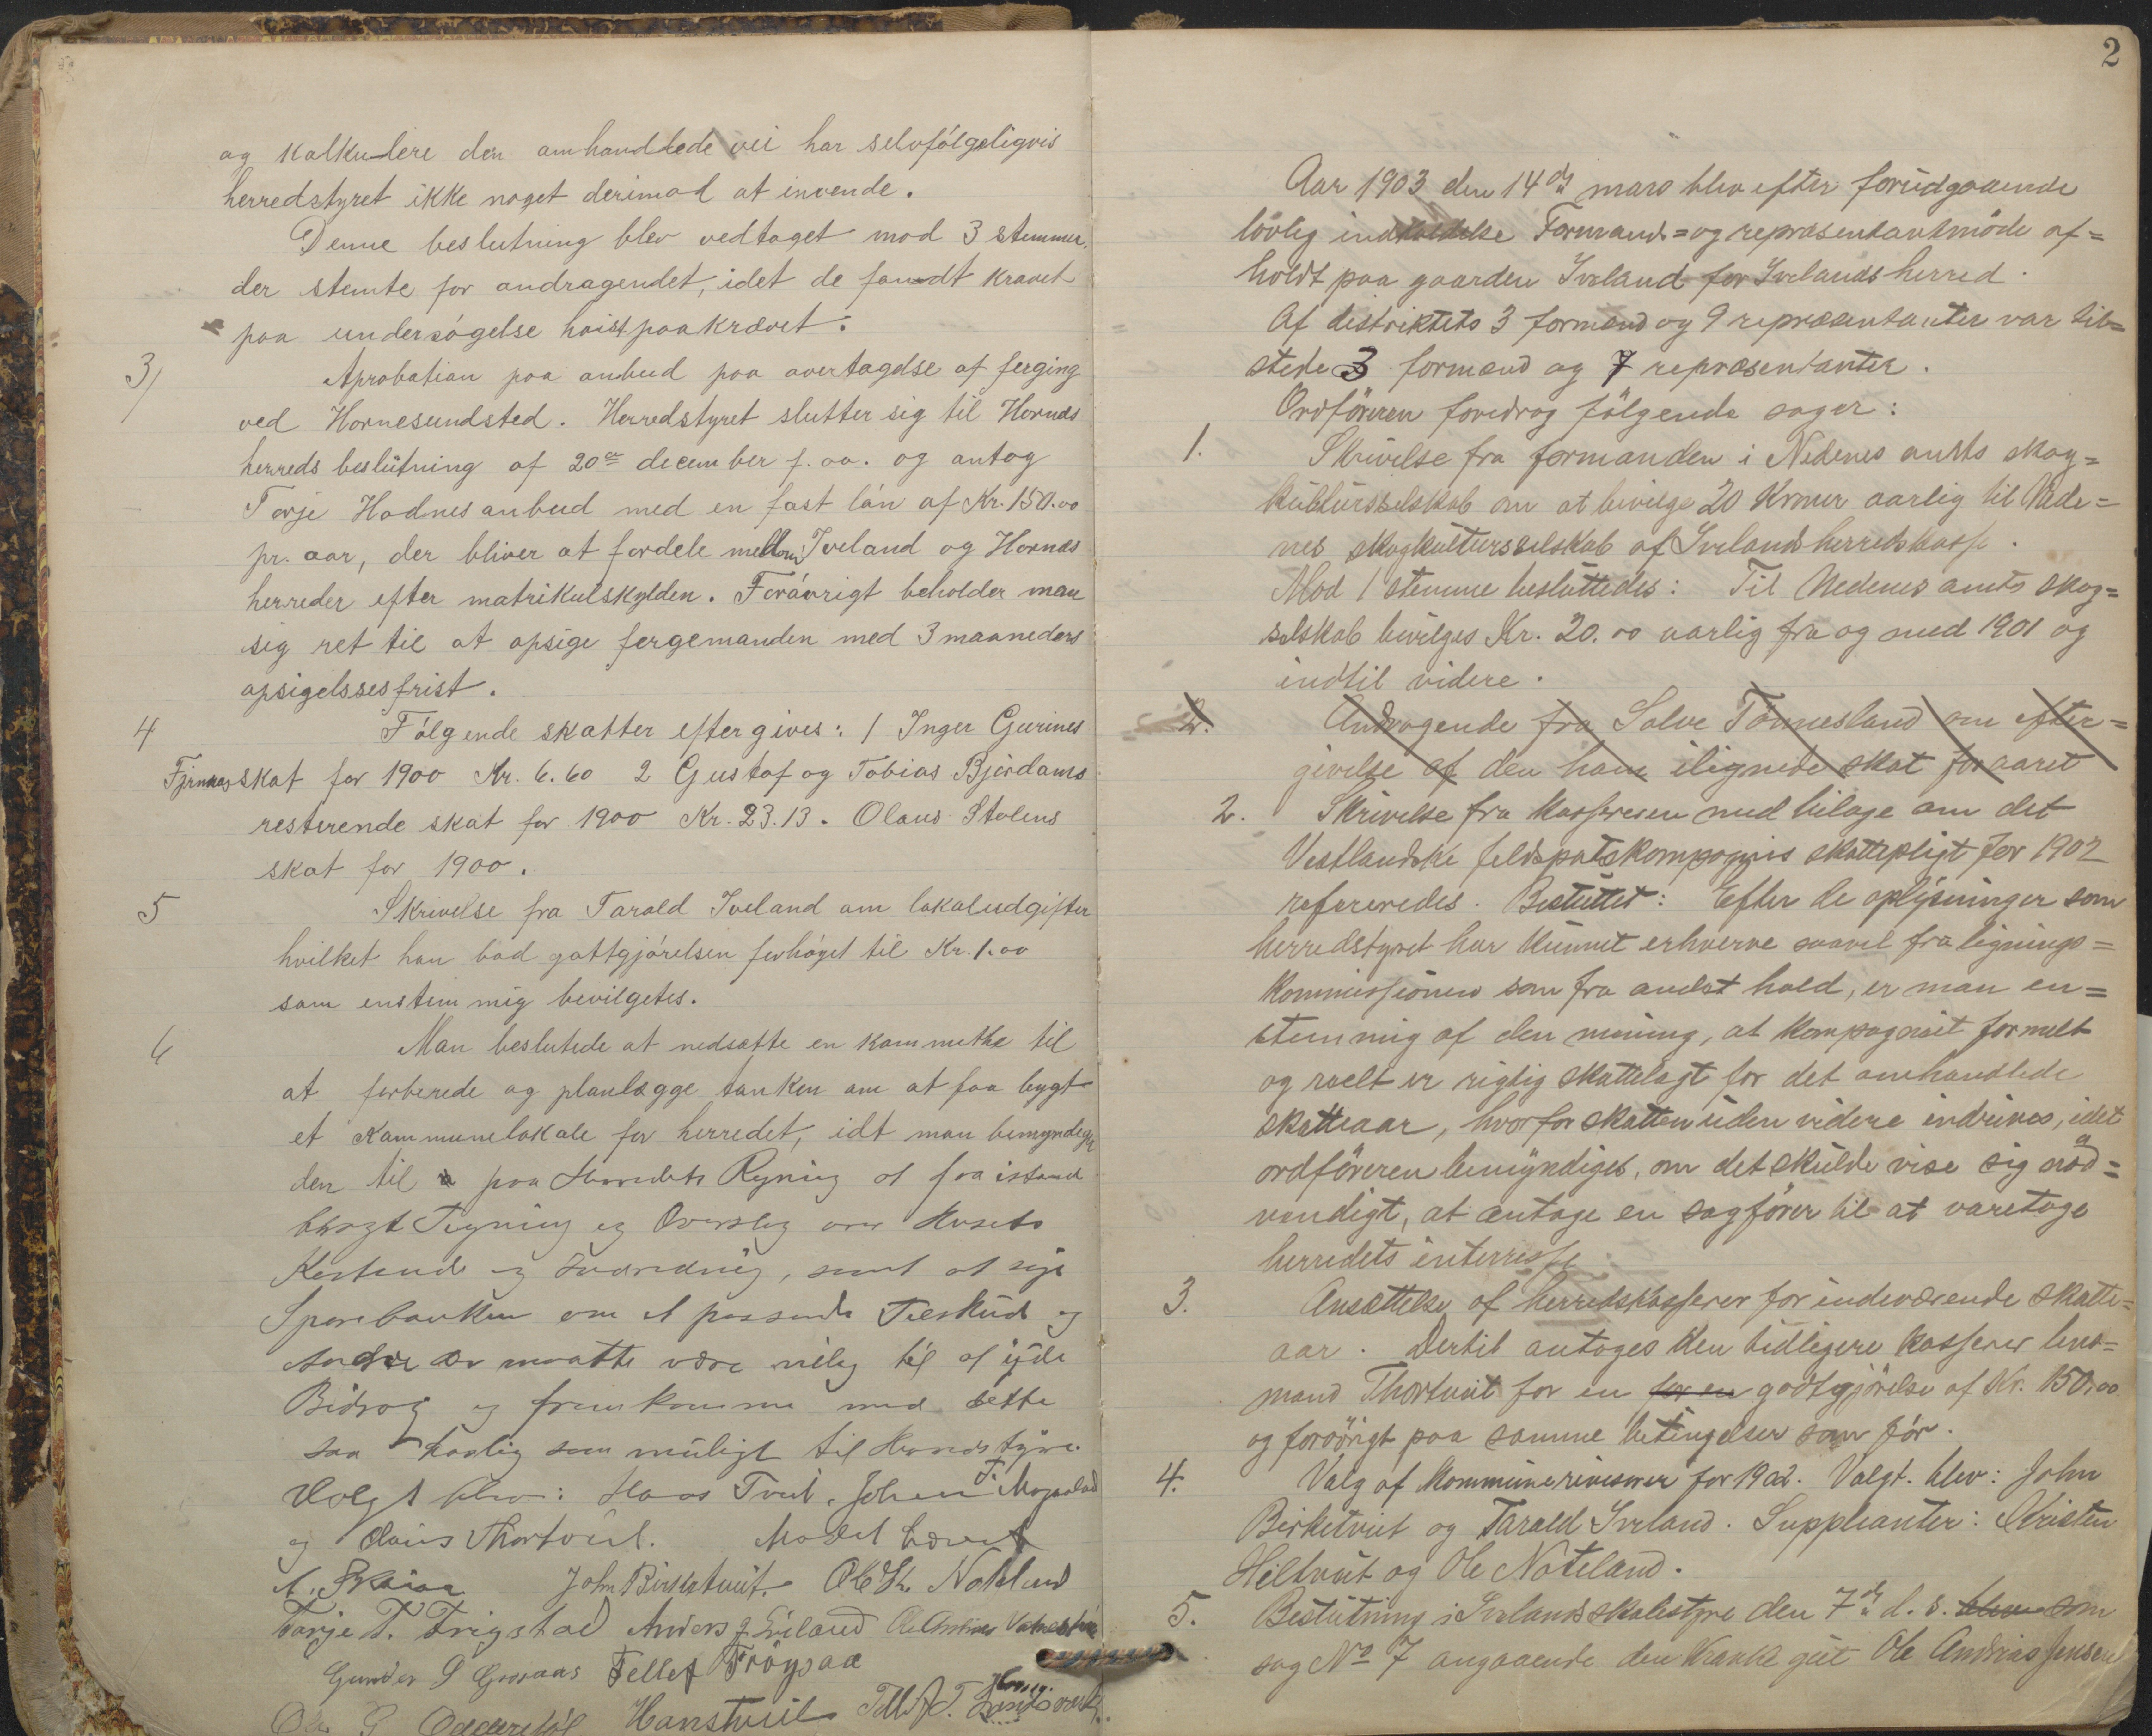 og kalkulere den omhandlede vei har selvfólgeligvis
herredstyret ikke noget derimod at invende.
Denne beslutning blev vedtaget mod 3 stemmer.
der stemte for andragendet, idet de fandt kravet
paa undersógelse hoist paakrævet.
3) Aprobation paa anbud paa overtagelse af ferging
ved Hornesundsted. Herredstyret slutter sig til Hornæs
herreds beslutning af 20de december f. aa. og antog
Torje Hodnes anbud med en fast lón af Kr. 150.00
pr. aar, der bliver at fordele mellom Iveland og Hornæs
herreder efter matrikulskylden. Forávrigt beholder man
sig ret til at opsige fergemanden med 3 maaneders
opsigelssesfrist.
4 Fólgende skatter eftergives: 1 Inger Gurines
skat for 1900 Kr. 6.60 2 Gustaf og Tobias Bjórdams
resterende skat for 1900 Kr. 23.13. Olaus Stolens
skat for 1900.
5 Skrivelse fra Tarald Iveland om lokaludgifter
hvilket han bad gottgjórelsen forhóget til Kr. 1.00
som enstemmig bevilgetes.
6 Man beslutede at nedsætte en kommitke til
at forberede og planlægge tanken om at faa bygt
et Kommunelokale for herredet, idt man bemyndiger
den til paa Herredets Regning at faa istand
bragt Tegning og Overslag over Husets
Kostende og Indredning, samt at søge
Sparebanken om et passende Tilskud og
Andre der maatte være villig til at yde
Bidrag og fremkomme med dette
saa snarlig som muligt til Herredstyre.
Valgt blev: Hans Tveit, Johan T.
og Claus Thortveit. Mødet hævet
John Birketveit. Ole K. Nateland
Torje T. Frigstad Anders J. Eiland Ole Andreas
Gunder S Tellef Frøysaa
Ole G. Hans Tveit Tellef T.
2
Aar 1903 den 14de mars blev efter forudgaaende
lovlig indkaldelse Formands= og repræsentantmöde af=
holdt paa gaarden Iveland for Ivelands herred.
Af distriktets 3 formænd og 9 repræsentanter var til=
stede 3 formænd og 7 repræsentanter.
Ordföreren foredrog fölgende sager:
1. Skrivelse fra formanden i Nedenes amts skog=
kultursselskab om at bevilge 20 Kroner aarlig til Nede=
nes skogkultursselskab af Ivelands herredskasse.
Mod 1 stemme besluttedes: Til Nedenes amts skog=
selskab bevilges Kr. 20.00 aarlig fra og med 1901 og
indtil videre.
2. Andragende fra Salve Tönnesland om efter=
givelse af den ham ilignede skat for aaret
2. Skrivelse fra kassereren med bilage om det
Vestlandske feldspatskompagnis skattepligt for 1902
refereredes. Besluttet: Efter de oplysninger som
herredstyret har kunnet erhverve saavel fra lignings=
kommissionen som fra andet hold, er man en=
stemmig af den mening, at kompagniet formelt
og reelt er rigtig skattelagt for det omhandlede
skatteaar, hvorfor skatten uden videre indrives, idet
ordföreren bemyndiges, om det skulde vise sig nöd=
vendigt, at antage en sagförer til at varetage
herredets interresse.
3. Ansættelse af herredskasserer for indeværende skatte=
aar. Dertil antoges den tidligere kasserer lens=
mand Thortveit for en for en godtgjörelse af Kr. 150,00
og forövrigt paa samme betingelser som för.
4. Valg af kommunerivisorer for 1902. Valgt. blev: John
Birketveit og Tarald Iveland. Suppleanter: Kristen
Hiltveit og Ole Nateland.
5. Beslutning i Ivelands skolestyre den 7de d. s. blev som
sag No 7 angaaende den kranke gut Ole Andreas Jensen